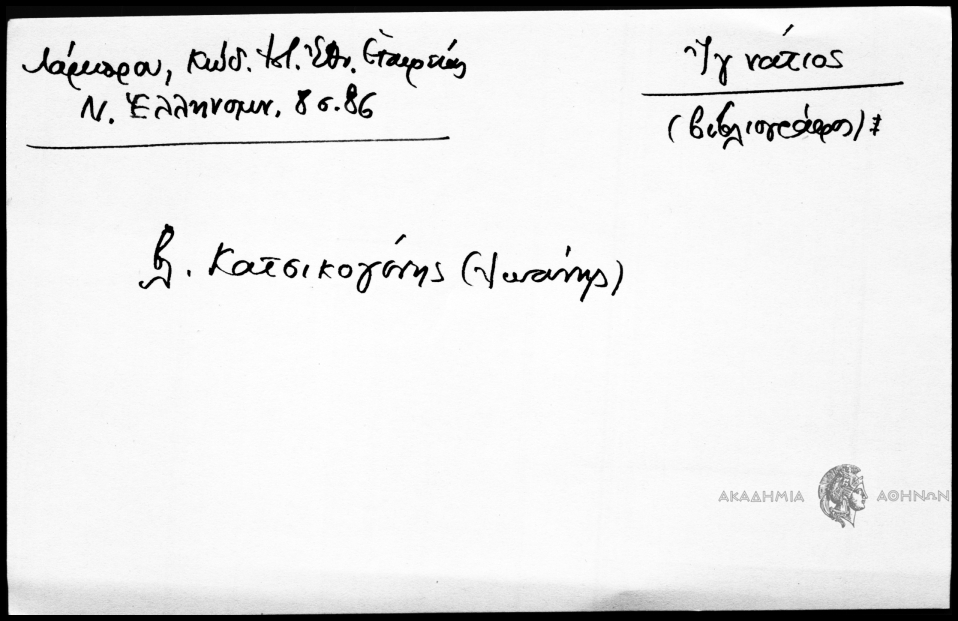 Λάμπρου, Κώδ. Ἱστ. Ἐθν. Ἑταιρείας
Ν. Ἑλληνομν. 8 σ. 86
Ἰγνάτιος
(βιβλιογράφος)
βλ. Κατσικογόνης (Ἰωάννης)
ΑΚΑΔΗΜΙΑ ΑΘΗΝΩΝ